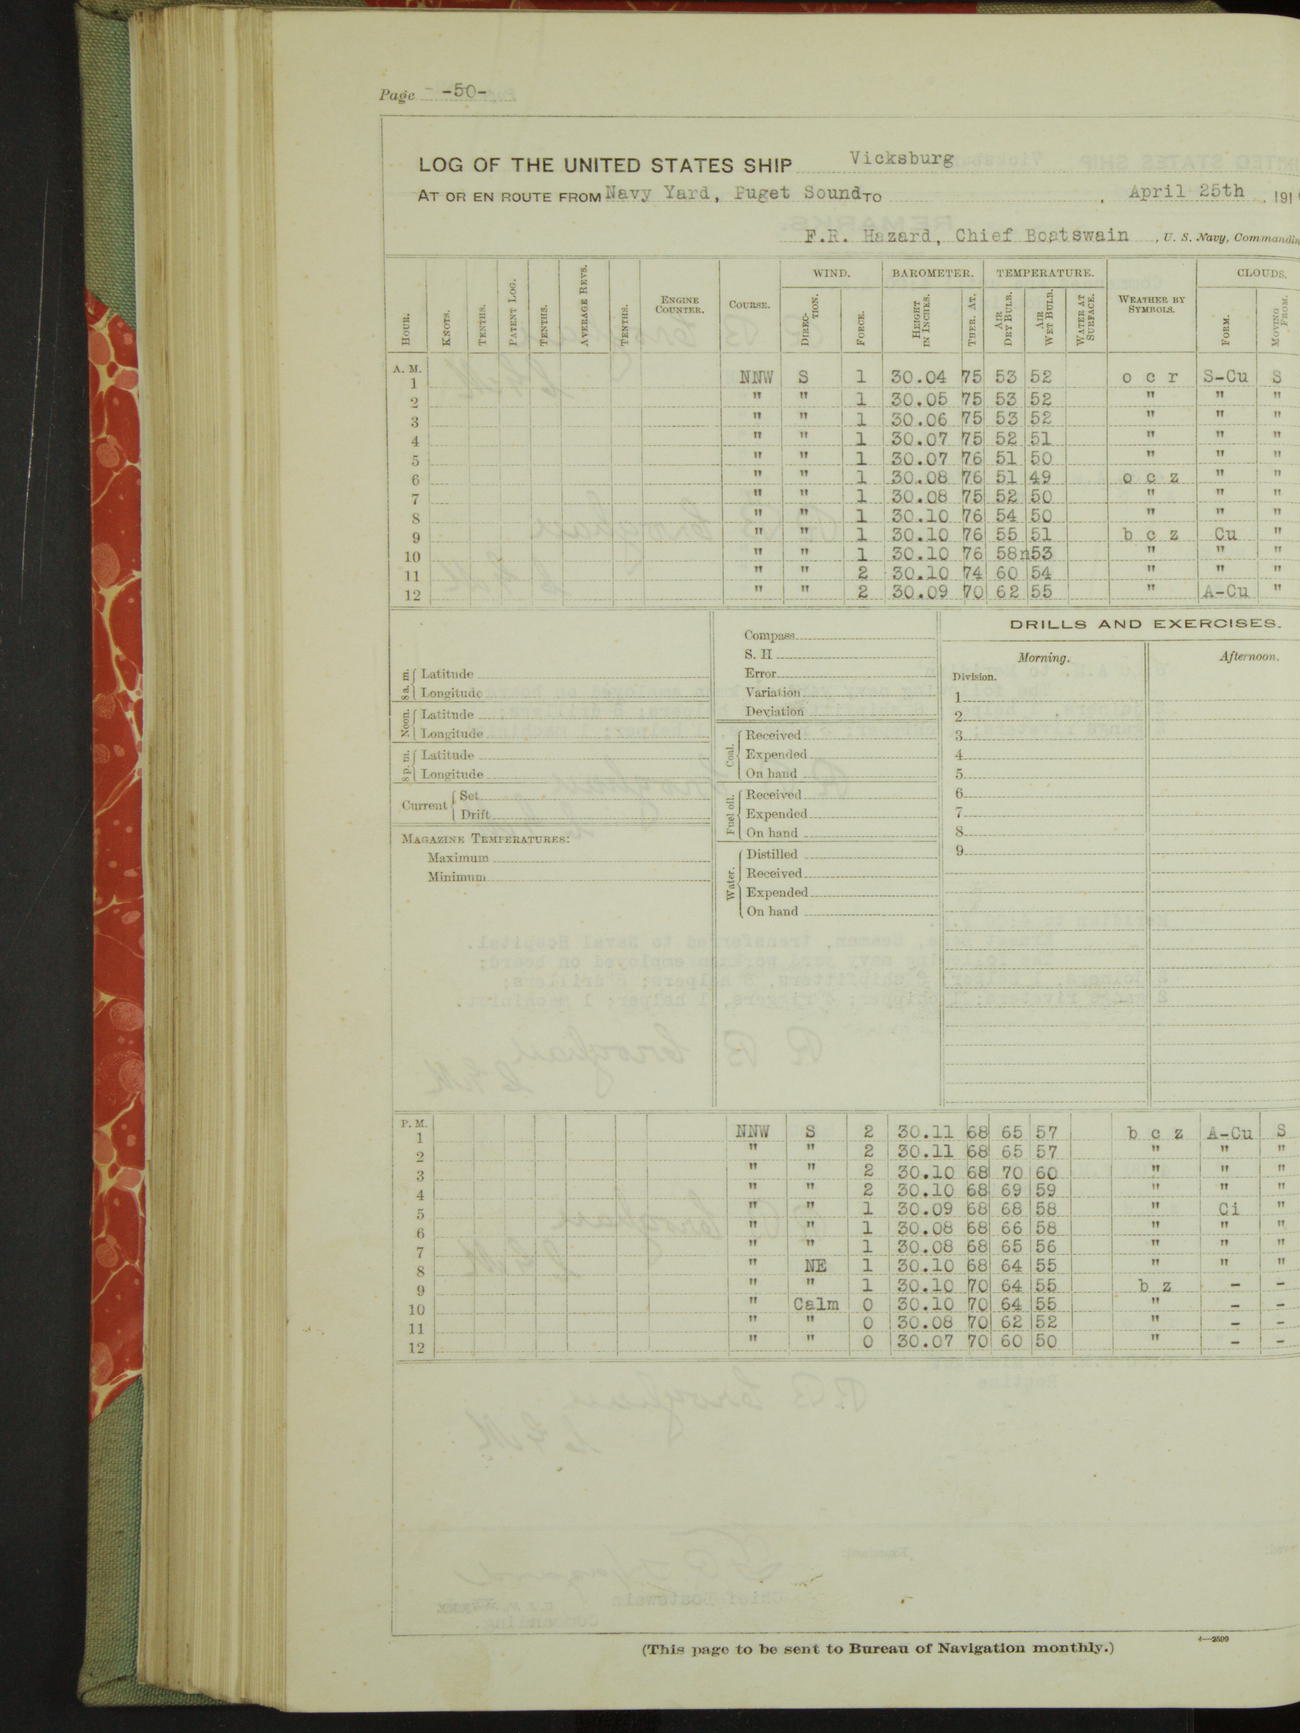 Page -50-
LOG OF THE UNITED STATES SHIP Vicksburg
AT OR EN ROUTE FROM Navy Yard, Puget Sound TO , April 25th , 191
F.R. Hazard, Chief Boatswain , U. S. Navy, Commanding
HOUR. KNOTS. TENTHS. PATENT LOG. TENTHS. AVERAGE REVS. TENTHS. ENGINE COUNTER. COURSE. WIND. DIRECTION. FORCE. BAROMETER. HEIGHT IN INCHES. THER. AT. TEMPERATURE. AIR DRY BULB. AIR WET BULB. WATER AT SURFACE. WEATHER BY SYMBOLS. CLOUDS. FORM. MOVING FROM.
A. M.
1 NNW S 1 30.04 75 53 52 o c r S-Cu S
2 " " 1 30.05 75 53 52 " " "
3 " " 1 30.06 75 53 52 " " "
4 " " 1 30.07 75 52 51 " " "
5 " " 1 30.07 76 51 50 " " "
6 " " 1 30.08 76 51 49 o c z " "
7 " " 1 30.08 75 52 50 " " "
8 " " 1 30.10 76 54 50 " " "
9 " " 1 30.10 76 55 51 b c z Cu "
10 " " 1 30.10 76 58n53 " " "
11 " " 2 30.10 74 60 54 " " "
12 " " 2 30.09 70 62 55 " A-Cu "
8 a. m. Latitude
Longitude
Noon. Latitude
Longitude
8 p. m. Latitude
Longitude
Current Set
Drift
MAGAZINE TEMPERATURES:
Maximum
Minimum
Compass
S. H
Error
Variation
Deviation
Coal. Received
Expended
On hand
Fuel oil. Received
Expended
On hand
Water. Distilled
Received
Expended
On hand
DRILLS AND EXERCISES.
Morning. Afternoon.
Division.
1
2
3
4
5
6
7
8
9
P. M.
1 NNW S 2 30.11 68 65 57 b c z A-Cu S
2 " " 2 30.11 68 65 57 " " "
3 " " 2 30.10 68 70 60 " " "
4 " " 2 30.10 68 69 59 " " "
5 " " 1 30.09 68 68 58 " Ci "
6 " " 1 30.08 68 66 58 " " "
7 " " 1 30.08 68 65 56 " " "
8 " NE 1 30.10 68 64 55 " " "
9 " " 1 30.10 70 64 55 b z - -
10 " Calm 0 30.10 70 64 55 " - -
11 " " 0 30.08 70 62 52 " - -
12 " " 0 30.07 70 60 50 " - -
(This page to be sent to Bureau of Navigation monthly.)
4—2599